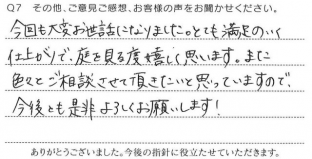 Q7 その他、ご意見ご感想、お客様の声をお聞かせください。
今回も大変お世話になりました。とても満足のいく
仕上がりで、庭を見る度嬉しく思います。また
色々とご相談させて頂きたいと思っていますので、
今後とも是非よろしくお願いします！
ありがとうございました。今後の指針に役立たせていただきます。